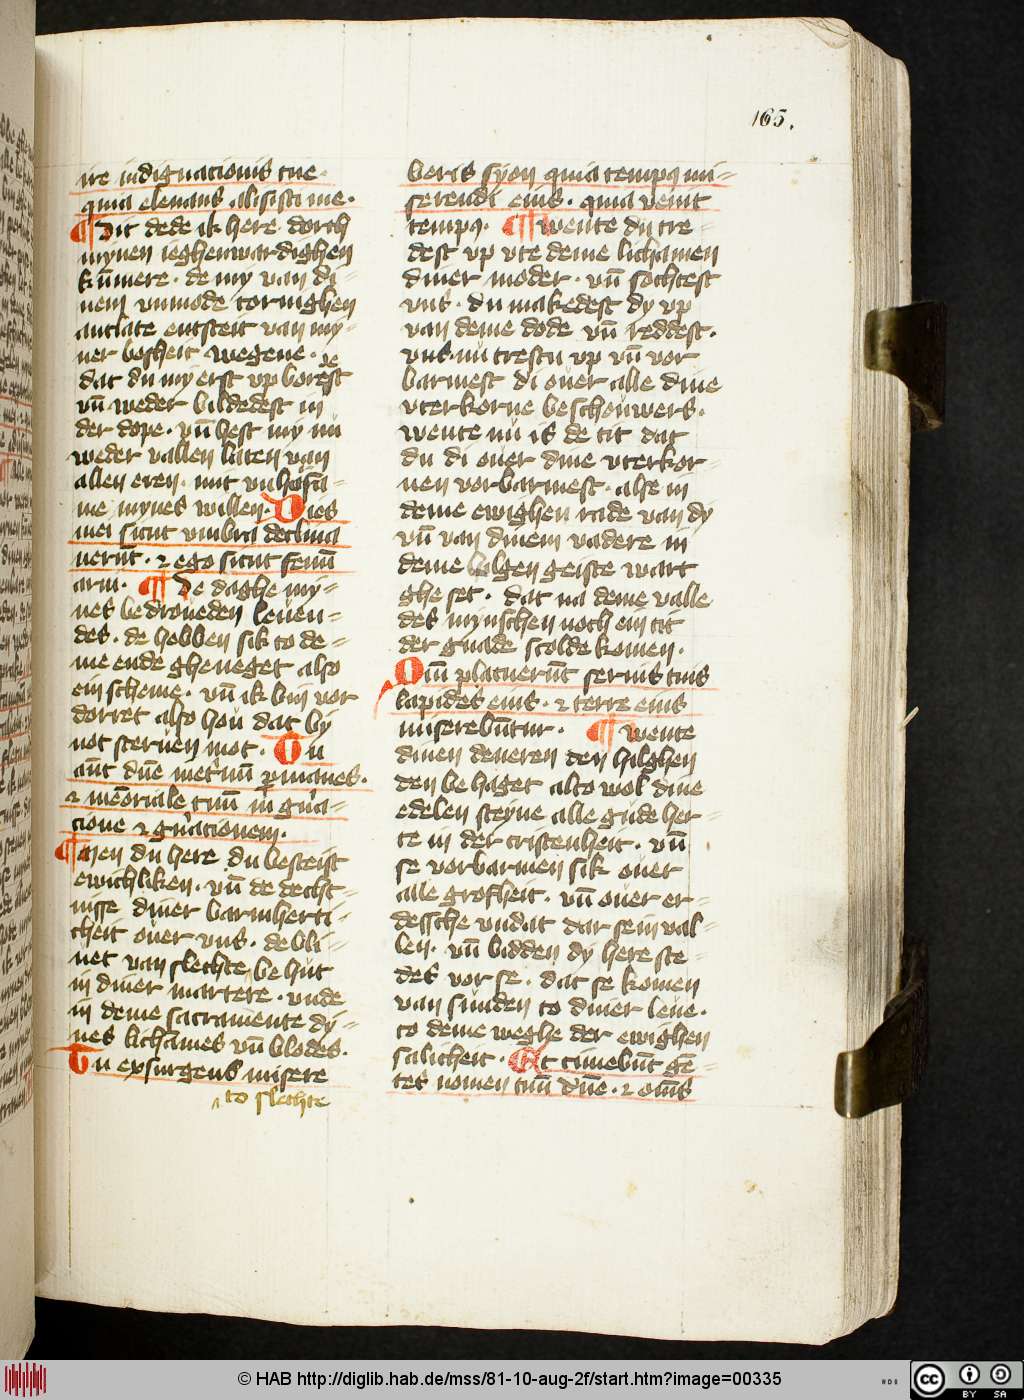 165.
ire indignacionis tue·
quia eleuans alisisti me·
¶ Dit dede ik here dorch
mynen ieghenwardighen
kūmere· de my van di=
nem vnmode tornighen
antlate entsteit van my=
ner bosheit wegene·
dat du my erst vp borest
vn̄ weder bildedest in
der dope· vn̄ hest my nu
weder vallen laten van
allen eren· mit vnhosā=
me mynes willen· Dies
mei sicut vmbra declina
uerūt· ⁊ ego sicut fenū
arui· ¶ De daghe my=
nes bedroueden leuen=
des· de hebben sik to de=
me ende gheneget also
ein scheme· vn̄ ik bin vor
dorret also hou dat by
not steruen mot· Tu
aūt dn̄e ineternū ꝑmanes·
⁊ memoriale tuū in gn̄a=
cione ⁊ gn̄acionem·
¶ Men du here du besteist
ewichliken· vn̄ de decht=
nisse diner barmherti=
cheit ouer vns· de bli=
uet van slechte be hut
in diner martere· vnde
in deme sacramente dy=
nes lichames vn̄ blodes·
Tu exsurgens misere
to slechte
beris syon quia tempꝰ mi=
serendi eius· quia venit
tempꝰ· ¶ Wente du tre=
dest vp vte deme lichamen
diner moder· vn̄ sochtest
vns· du makedest dy vp
van deme dode vn̄ reddest·
vns· nu trestu vp vn̄ vor
barmest di ouer alle dine
vterkorne beschouwers·
wente nu is de tit dat
du di ouer dine vterkor=
nen vorbarmest· alse in
deme ewighen rade van dy
vn̄ van dinem vadere in
deme hilgen geiste wart
ghe set· dat na deme valle
des mynschen noch ein tit
der gnade scolde komen·
Qm̄ placuerūt seruis tuis
lapides eius· ⁊ terre eius
miserebūtur· ¶ Wente
dinen deneren den hilghen
den be haget alto wol dine
edelen steyne alle gude her=
te in der cristenheit· vn̄
se vorbarmen sik ouer
alle grofheit· vn̄ ouer er=
dessche vndat dar se in val=
len· vn̄ bidden dy here ste=
des vor se· dat se komen
van sunden to diner leue·
to deme weghe der ewighen
salicheit· Et timebūt gē=
tes nomen tuū dn̄e· ⁊ om̄s
© HAB http://diglib.hab.de/mss/81-10-aug-2f/start.htm?image=00335
cc BY SA